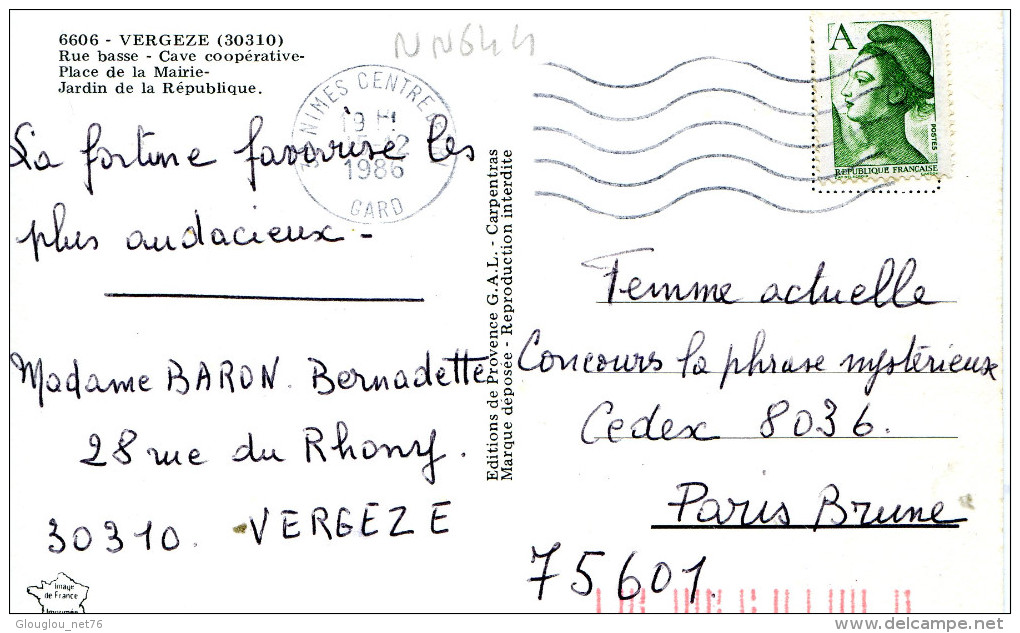 6606 - VERGEZE (30310)
Rue basse - Cave coopérative-
Place de la Mairie-
Jardin de la République.
NIMES CENTRE
19 H
12
1986
GARD
A
POSTES
REPUBLIQUE FRANÇAISE
La fortune favorise les
plus audacieux -
Madame BARON. Bernadette
28 rue du Rhony.
30310. VERGEZE
Editions de Provence G.A.L. - Carpentras
Marque déposée - Reproduction interdite
Femme actuelle
Concours la phrase mystérieux
Cedex 8036.
Paris Brune
75601.
Image
de France
Glouglou_net76